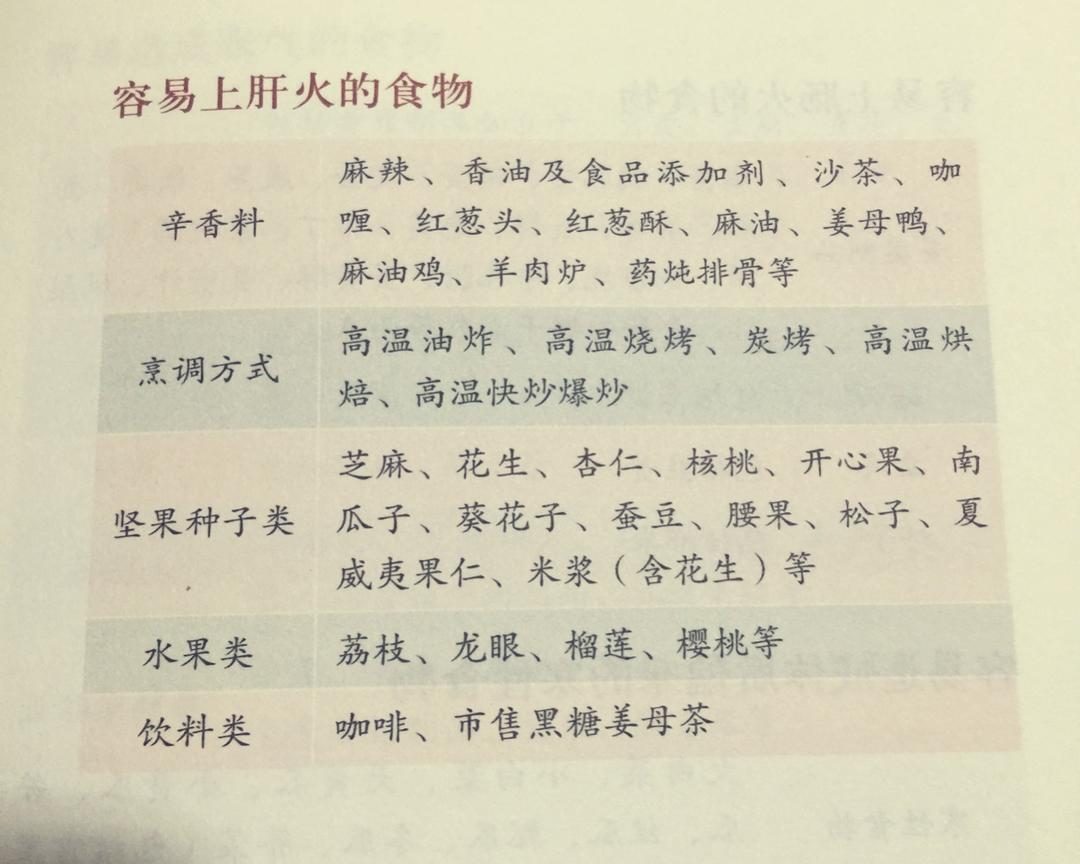 容易上肝火的食物
辛香料
麻辣、香油及食品添加剂、沙茶、咖
喱、红葱头、红葱酥、麻油、姜母鸭、
麻油鸡、羊肉炉、药炖排骨等
烹调方式
高温油炸、高温烧烤、炭烤、高温烘
焙、高温快炒爆炒
坚果种子类
芝麻、花生、杏仁、核桃、开心果、南
瓜子、葵花子、蚕豆、腰果、松子、夏
威夷果仁、米浆（含花生）等
水果类
荔枝、龙眼、榴莲、樱桃等
饮料类
咖啡、市售黑糖姜母茶